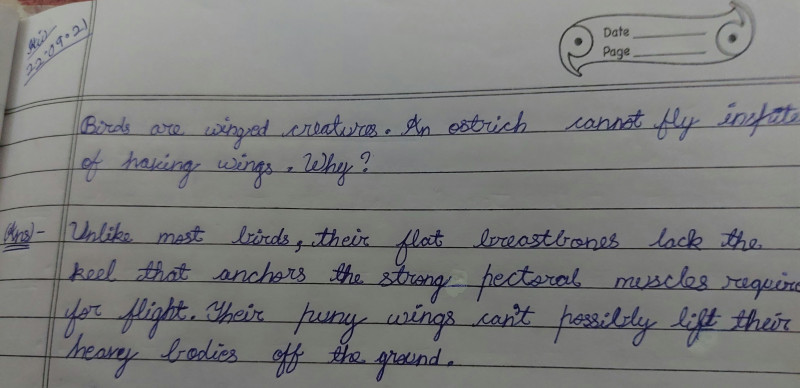 22.09.21
Date
Page
Birds are winged creatures. An ostrich cannot fly inspite
of having wings. Why?
(Ans)- Unlike most birds, their flat breastbones lack the
keel that anchors the strong pectoral muscles require
for flight. Their puny wings can't possibly lift their
heavy bodies off the ground.